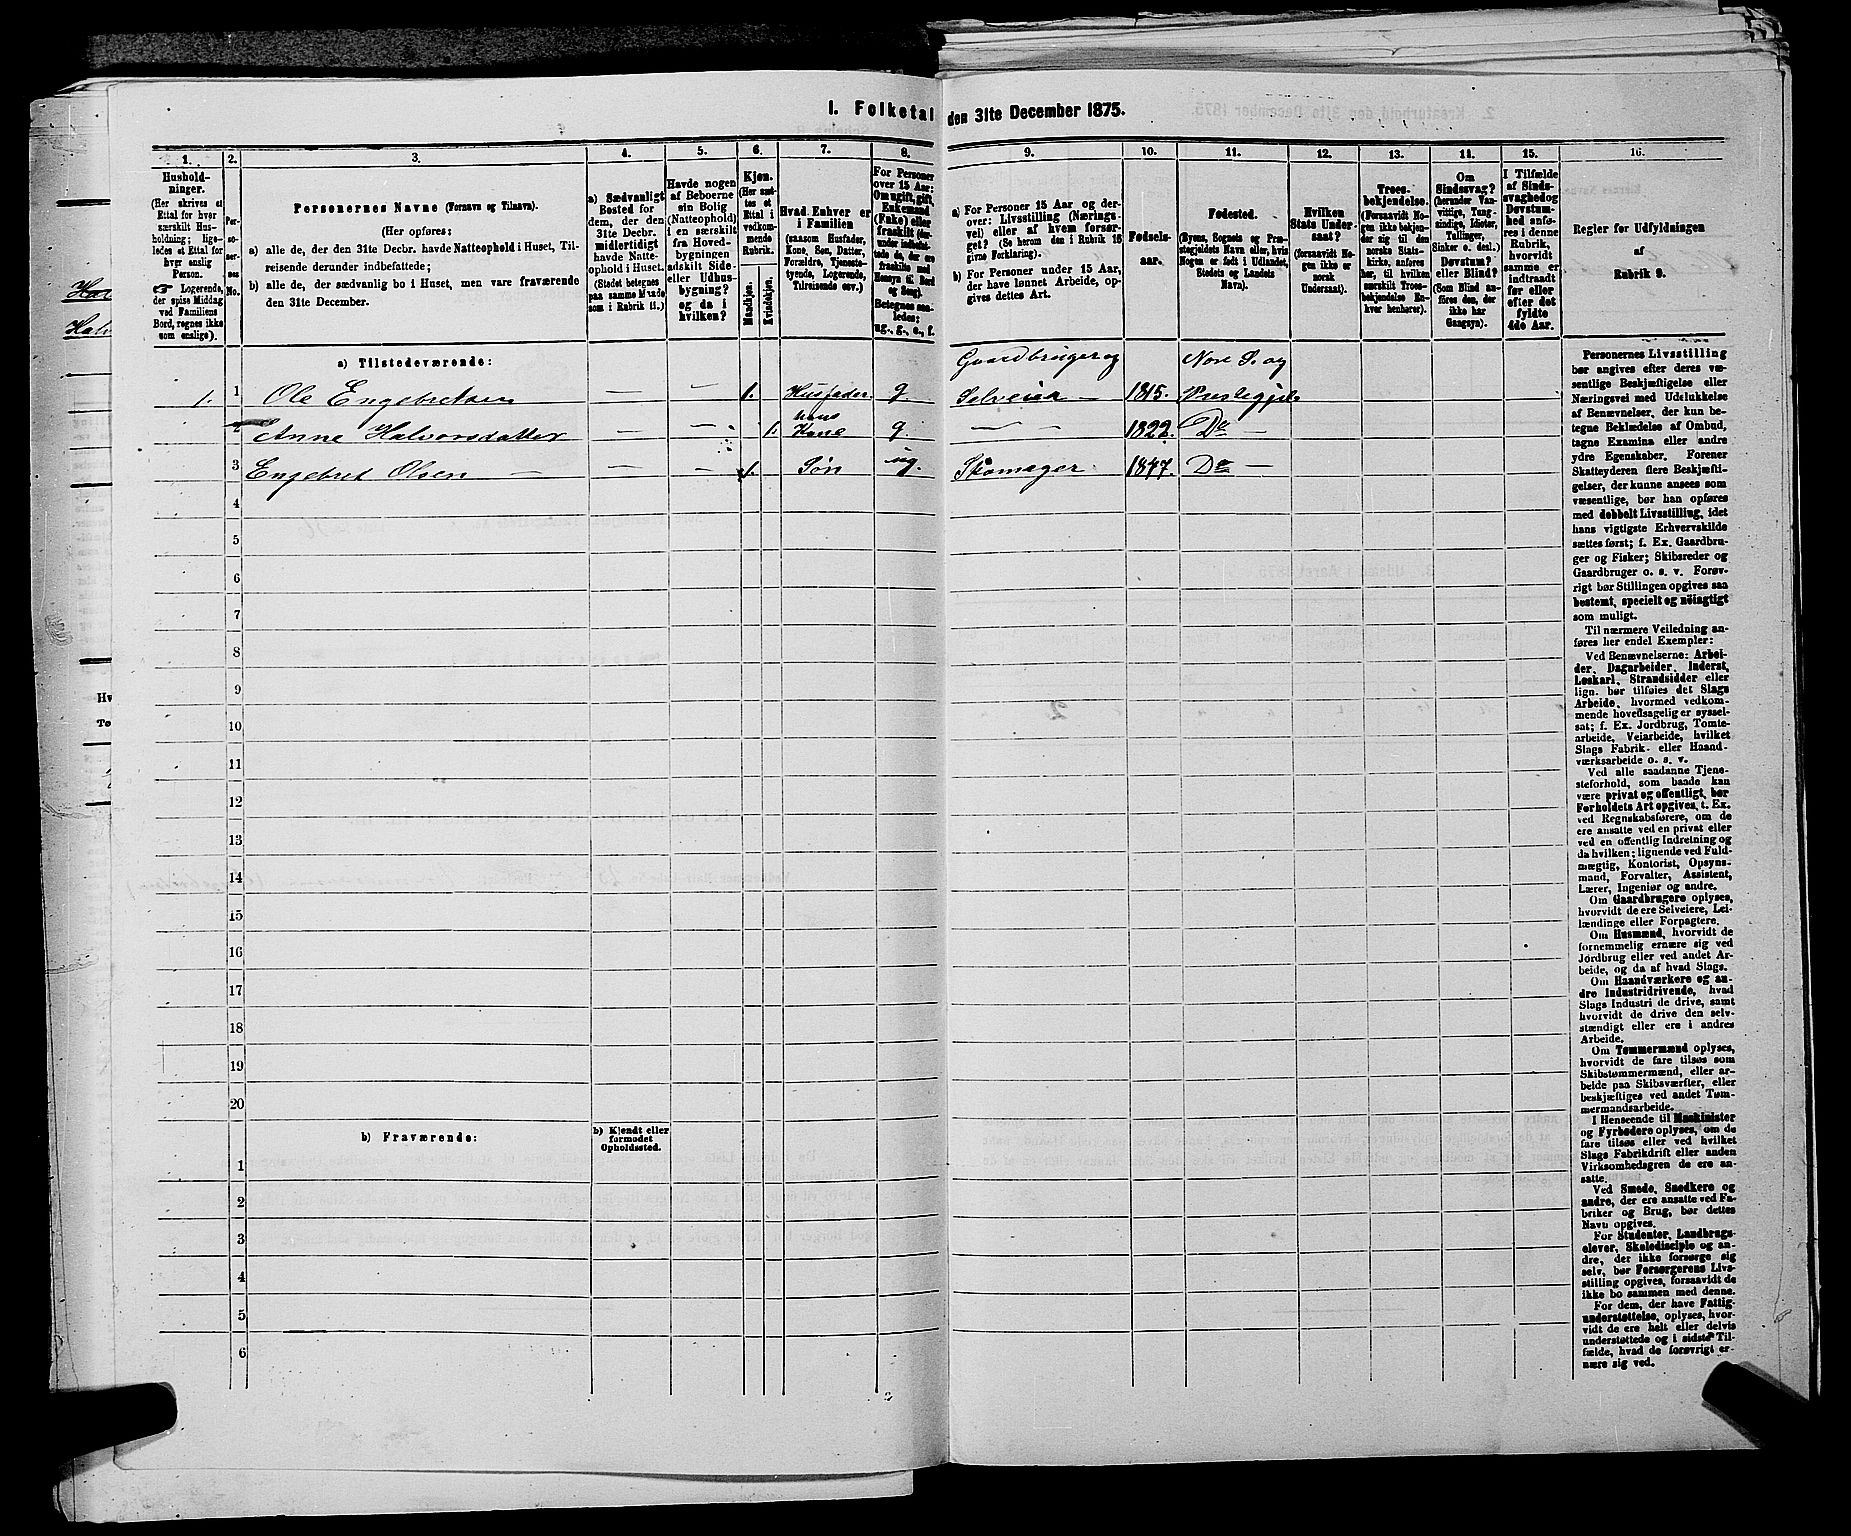 I. Folketal den 31te December 1875.
1. 2. 3. 4. 5. 6. 7. 8. 9. 10. 11. 12. 13. 14. 15. 16.
Husholdninger.
(Her skrives et
Ettal for hver
særskilt Husholdning;
ligeledes et Ettal for
hver enslig
Person.
☞ Logerende,
der spise Middag
ved Familiens
Bord, regnes ikke
som enslige).
Personernes No.
Personernes Navne (Fornavn og Tilnavn).
(Her opføres:
a) alle de, der den 31te Decbr. havde Natteophold i Huset, Tilreisende derunder indbefattede;
b) alle de, der sædvanlig bo i Huset, men vare fraværende
den 31te December.
a) Sædvanligt
Bosted for
dem, der den
31te Decbr.
midlertidigt
havde Natteophold i Huset.
(Stedet betegnes
paa samme Maade
som i Rubrik 11.)
Havde nogen
af Beboerne
sin Bolig
(Natteophold)
i en særskilt
fra Hovedbygningen
adskilt Side-
eller Udhusbygning?
og da i
hvilken?
Kjøn.
(Her sættes et
Ettal i
vedkommende
Rubrik.
Mandkjøn.
Kvindekjøn.
Hvad Enhver er
i Familien
(saasom Husfader,
Kone, Søn, Datter,
Forældre, Tjenestetyende, Logerende,
Tilreisende osv.)
For Personer
over 15 Aar:
Om ugift, gift,
Enkemand
(Enke) eller
fraskilt
Betegnes saaledes:
ug., g., e., f.
a) For Personer 15 Aar og derover: Livsstilling (Næringsvei) eller af hvem forsørget? (Se herom den i Rubrik 16
givne Forklaring).
b) For Personer under 15 Aar,
der have lønnet Arbeide, opgives dettes Art.
Fødsels-
aar.
Fødested.
(Byens, Sognets og Præstegjeldets Navn eller, hvis
Nogen er født i Udlandet,
Stedets og Landets
Navn).
Hvilken
Stats Undersaat?
(forsaavidt Nogen ikke er
norsk
Undersaat).
Troesbekjendelse.
(Forsaavidt Nogen ikke bekjender sig til den
norske Statskirke, anføres
her, til hvilken
særskilt Troesbekjendelse Enhver henhører).
Om
Sindssvag?
(herunder Vanvittige, Tungsindige, Idioter,
Tullinger,
Sinker o. desl.)
Døvstum?
eller Blind?
(Som Blind anføres den, der
ikke har
Gangsyn).
I Tilfælde
af Sindssvaghed og
Døvstumhed anføres i denne
Rubrik,
hvorvidt
samme er
indtraadt
før eller
efter det
fyldte
4de Aar.
Regler for Udfyldningen
af
Rubrik 9.
a) Tilstedeværende:
1. 1 Ole Engebretsen — — 1. Husfader g. Gaardbruger og Selveier — 1815. Nore S. og Præstegjeld
2 Anne Halvorsdatter — — 1. hans Kone g. — — 1822. Do —
3 Engebret Olsen — — — 1. Søn ug. Skomager 1847. Do —
4
5
6
7
8
9
10
11
12
13
14
15
16
17
18
19
20
b) Fraværende:
b) Kjendt eller
formodet
Opholdssted.
1
2
3
4
5
6
Personernes Livsstilling
bør angives efter deres væsentlige Beskjæftigelse eller
Næringsvei med Udelukkelse
af Benævnelser, der kun betegne Beklædelse af Ombud,
tagne Examina eller andre
ydre Egenskaber. Forener
Skatteyderen flere Beskjæftigelser, der kunne ansees som
væsentlige, bør han opføres
med dobbelt Livsstilling, idet
hans vigtigste Erhvervskilde
sættes først; f. Ex. Gaardbruger og Fisker; Skibsreder og
Gaardbruger o. s. v. Forøvrigt bør Stillingen opgives saa
bestemt, specielt og nöiagtigt
som muligt.
Til nærmere Veiledning anføres her endel Exempler:
Ved Benævnelserne: Arbeider, Dagarbeider, Inderst,
Løskarl, Strandsidder eller
lign. bør tilføies det Slags
Arbeide, hvormed vedkommende hovedsagelig er sysselsat; f. Ex. Jordbrug, Tomtearbeide, Veiarbeide, hvilket
Slags Fabrik- eller Haandværksarbeide o. s. v.
Ved alle saadanne Tjenesteforhold, som baade kan
være privat og offentligt, bør
Forholdets Art opgives, t. Ex.
ved Regnskabsførere, om de
ere ansatte ved en privat eller
ved en offentlig Indretning og
da hvilken; lignende ved Fuldmægtig, Kontorist, Opsynsmand, Forvalter, Assistent,
Lærer, Ingeniør og andre.
Om Gaardbrugere oplyses,
hvorvidt de ere Selveiere, Leilændinge eller Forpagtere.
Om Husmænd, hvorvidt de
fornemmelig ernære sig ved
Jordbrug eller ved andet Arbeide, og da af hvad Slags.
Om Haandværkere og andre Industridrivende, hvad
Slags Industri de drive, samt
hvorvidt de drive den selvstændigt eller ere i andres
Arbeide.
Om Tømmermænd oplyses,
hvorvidt de fare tilsøs som
Skibstømmermænd, eller arbeide paa Skibsværfter, eller
beskjæftiges ved andet Tømmermandsarbeide.
I Henseende til Maskinister
og Fyrbødere oplyses, om de
fare tilsøs eller ved hvilket
Slags Fabrikdrift eller anden
Virksomhedsgren de ere ansatte.
Ved Smede, Snedkere og
andre, der ere ansatte ved Fabriker og Brug, bør dettes
Navn opgives.
For Studenter, Landbrugselever, Skoledisciple og andre, der ikke forsørge sig
selv, bør Forsørgerens Livsstilling opgives, forsaavidt de
ikke bo sammen med denne.
For dem, der have Fattigunderstøttelse, oplyses, hvorvidt de ere helt eller delvis
understøttede og i sidste Tilfælde, hvad de forøvrigt ernære sig ved.